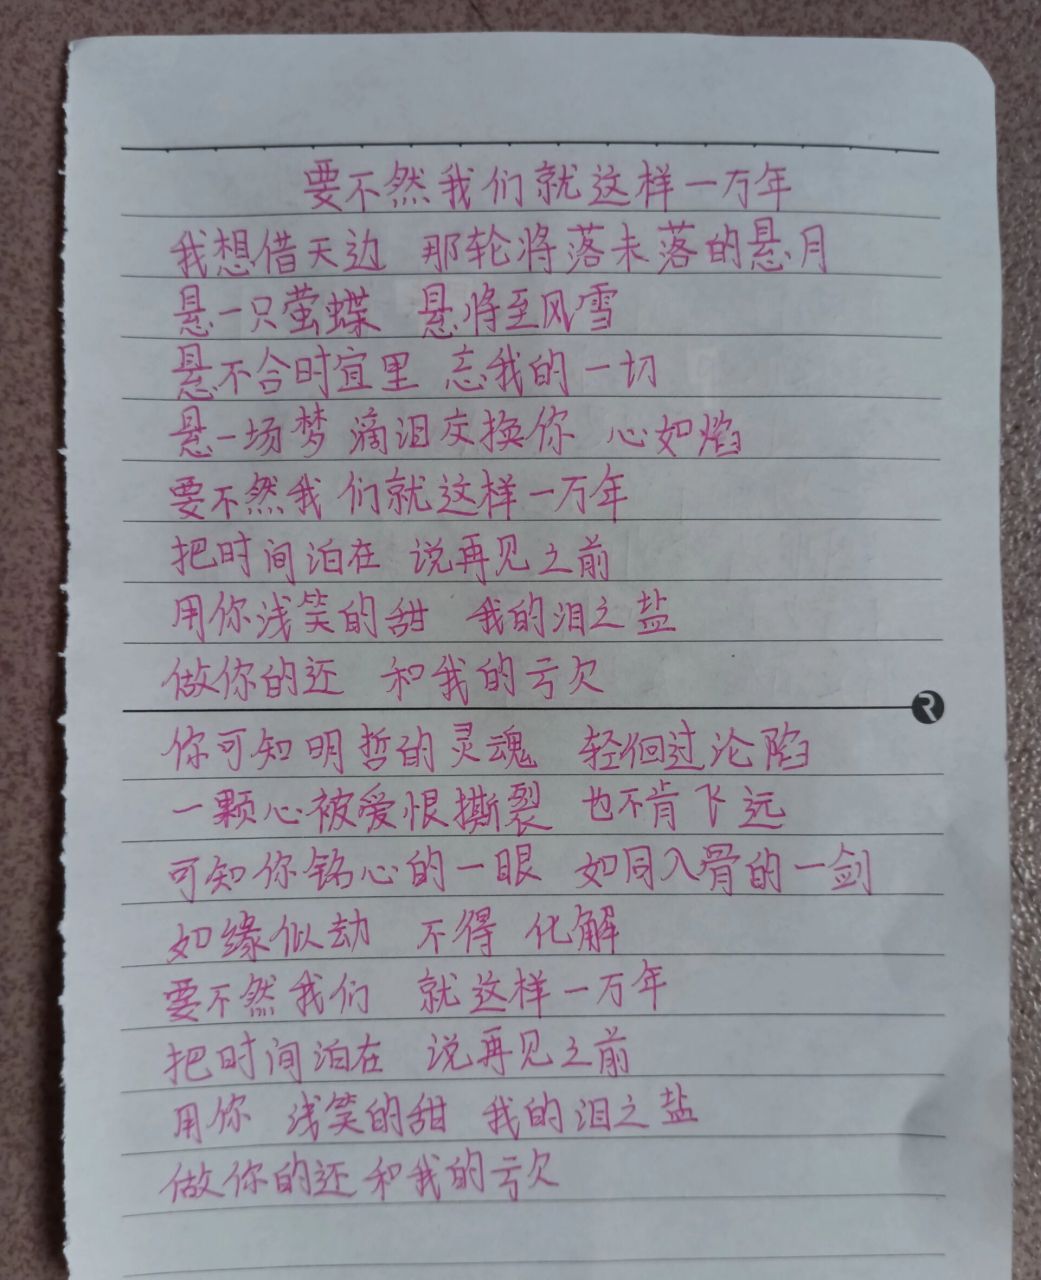 要不然我们就这样一万年
我想借天边 那轮将落未落的悬月
悬一只萤蝶 悬将至风雪
悬不合时宜里 忘我的一切
悬一场梦 滴泪交换你 心如焰
要不然我 们就这样一万年
把时间泊在 说再见之前
用你浅笑的甜 我的泪之盐
做你的还 和我的亏欠
你可知明哲的灵魂 轻徊过沦陷
一颗心被爱恨撕裂 也不肯飞远
可知你铭心的一眼 如同入骨的一剑
如缘似劫 不得 化解
要不然我们 就这样一万年
把时间泊在 说再见之前
用你 浅笑的甜 我的泪之盐
做你的还和我的亏欠